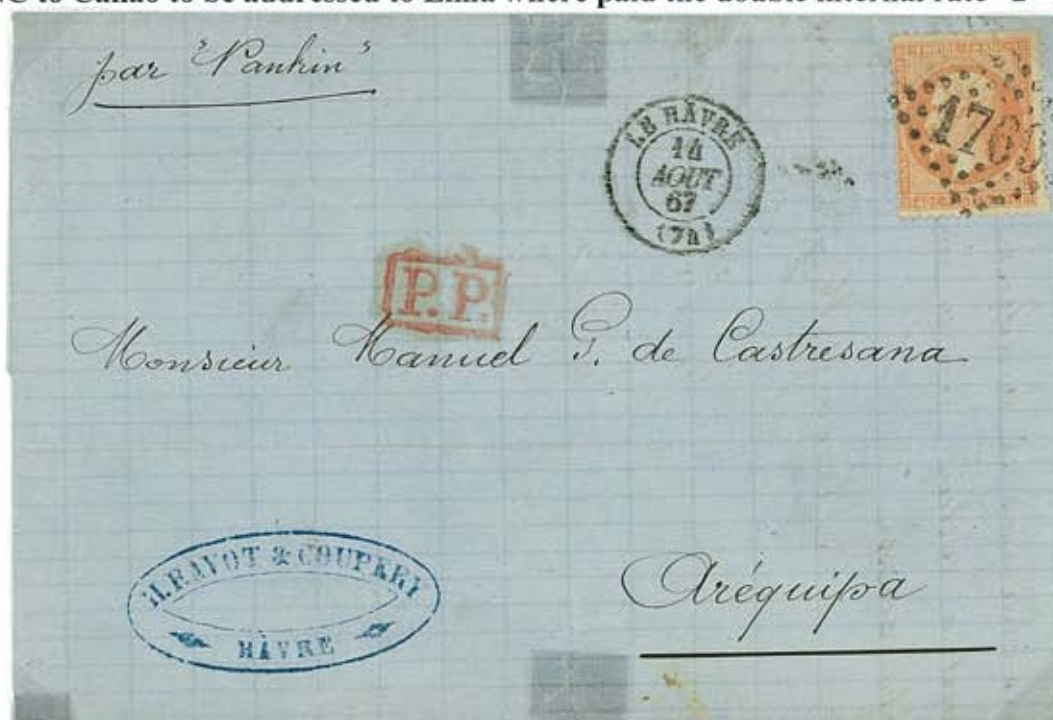 to Callao to be addressed to Lima where paid the double internal rate
par "Nankin"
LE HÂVRE
14
AOUT
67
(74)
1769
P.P.
Monsieur Manuel G. de Castresana
H. RAVOT &
HÂVRE
Aréquipa